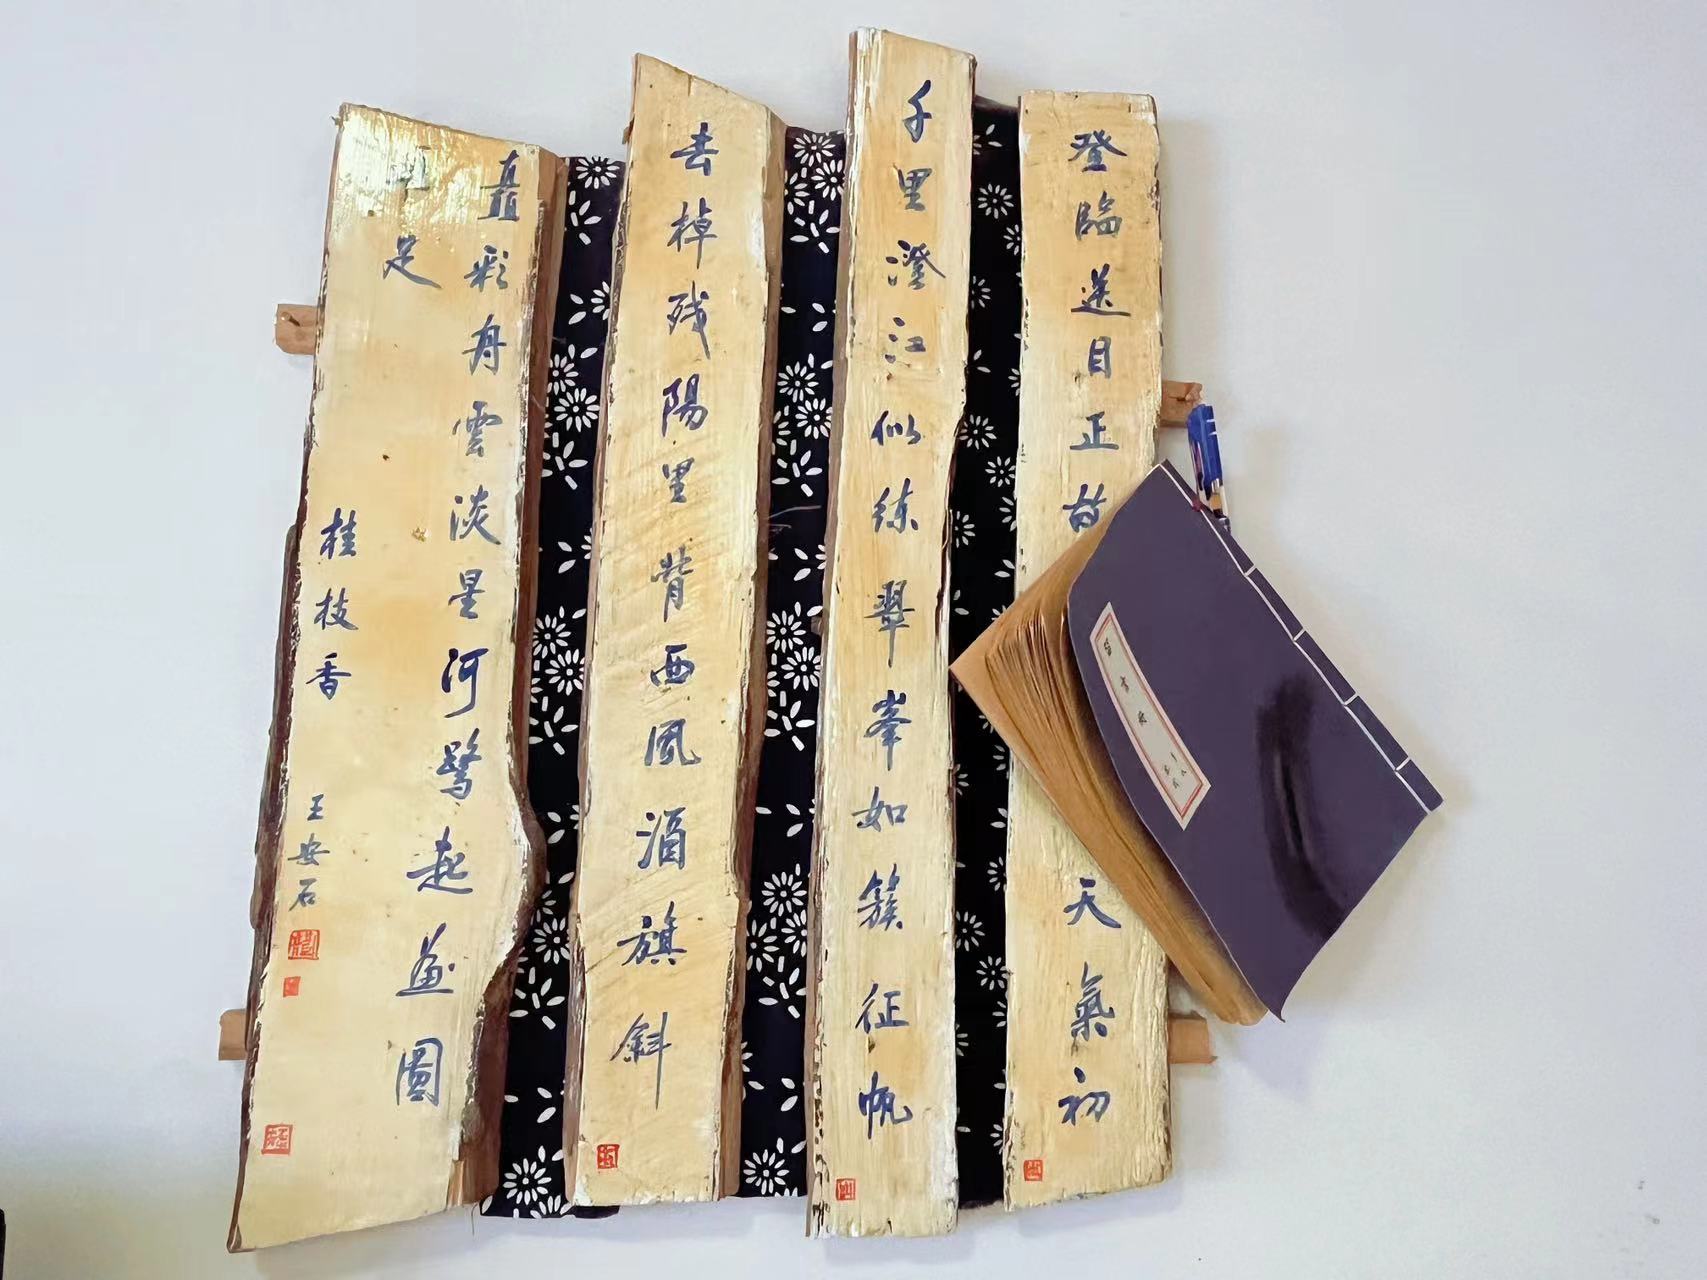 登臨送目正
天氣初
千里澄江似练翠峯如簇征帆
去棹残陽里背西風酒旗斜
矗彩舟雲淡星河鹭起画圖
足
桂枝香
王安石